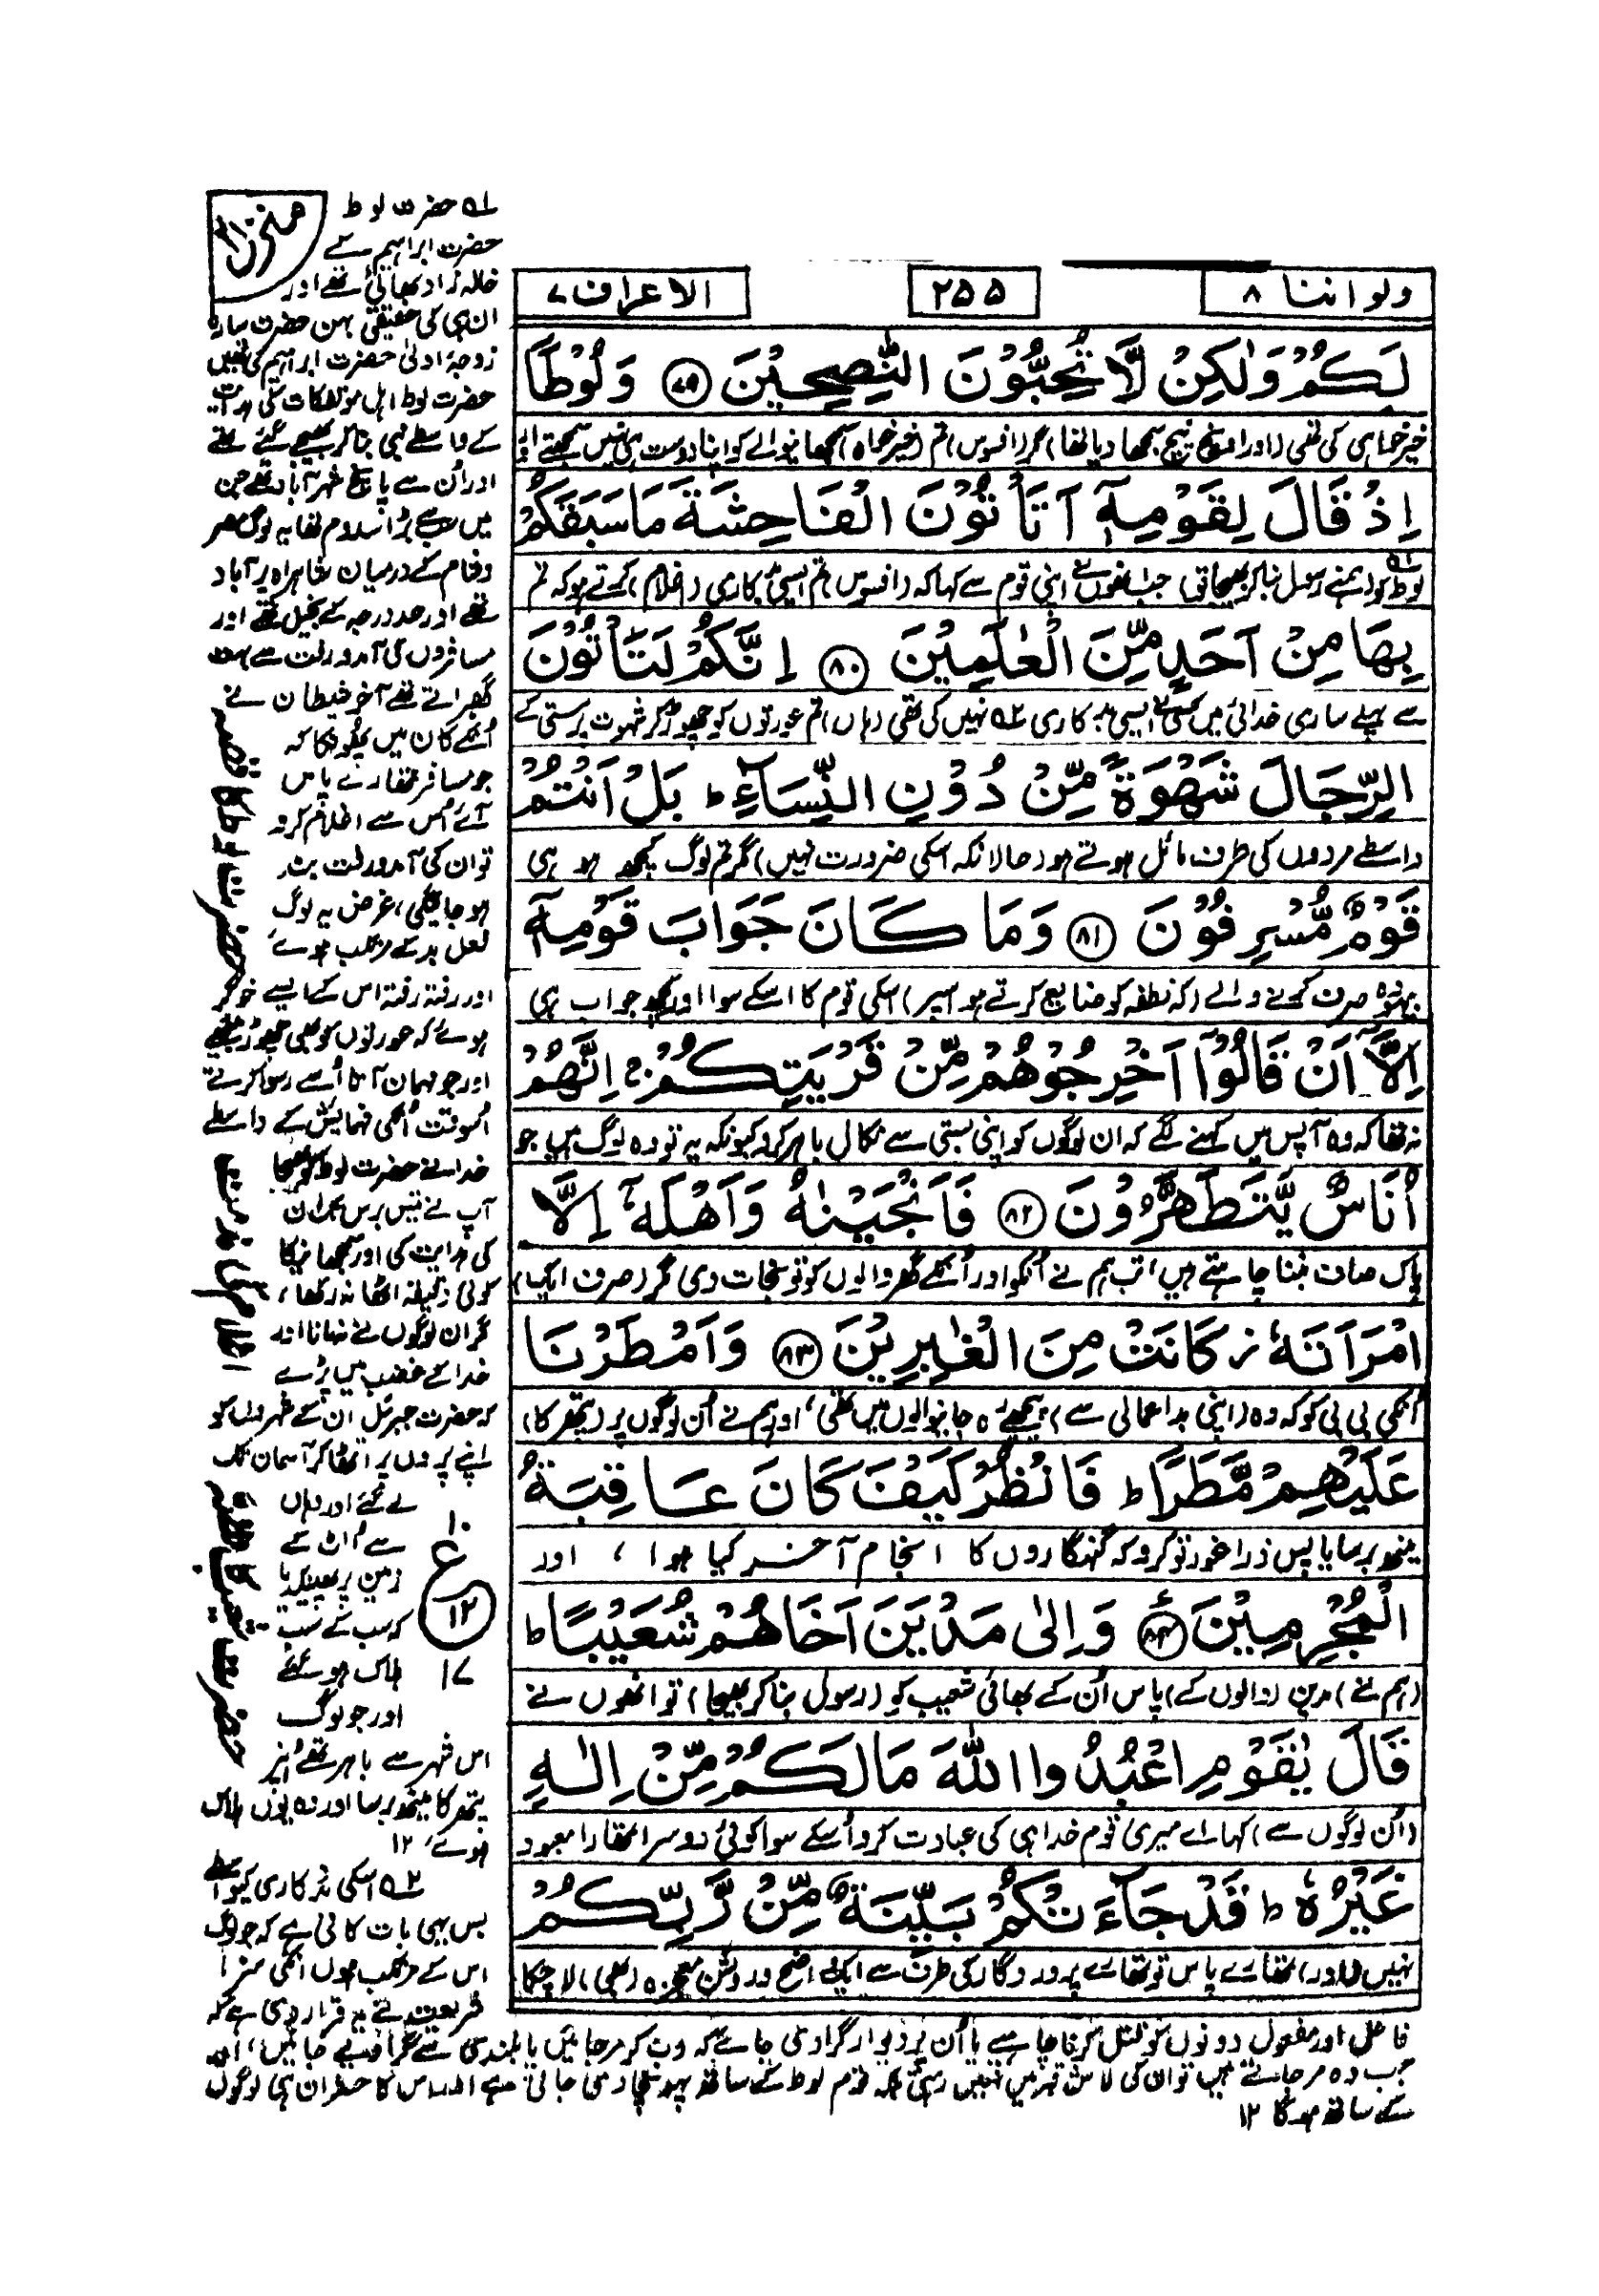 ولو اننا ۸
۲۵۵
الاعراف ۷
لَكُمْ وَلٰكِنْ لَّا تُحِبُّوْنَ النّٰصِحِيْنَ ۷۹ وَلُوْطًا
خیر خواہی کی تھی (اور اونچ نیچ سمجھا دیا تھا) مگر (افسوس) تم (خیر خواہ) سمجھانیوالے کو اپنا دوست ہی نہیں سمجھتے اور
اِذْ قَالَ لِقَوْمِهٖٓ اَتَاْتُوْنَ الْفَاحِشَةَ مَا سَبَقَكُمْ
لوط کو (ہمنے رسول بنا کر بھیجا تھا) جب انھوں نے اپنی قوم سے کہا کہ (افسوس) تم ایسی بدکاری (اغلام) کرتے ہو کہ تم
بِهَا مِنْ اَحَدٍ مِّنَ الْعٰلَمِيْنَ ۸۰ اِنَّكُمْ لَتَاْتُوْنَ
سے پہلے ساری خدائی میں کسی نے ایسی بدکاری ۵۲ نہیں کی تھی (ہاں) تم عورتوں کو چھوڑ کر شہوت پرستی کے
الرِّجَالَ شَهْوَةً مِّنْ دُوْنِ النِّسَآءِ ط بَلْ اَنْتُمْ
واسطے مردوں کی طرف مائل ہوتے ہو (حالانکہ اسکی ضرورت نہیں) مگر تم لوگ کچھ ہو ہی
قَوْمٌ مُّسْرِفُوْنَ ۸۱ وَمَا كَانَ جَوَابَ قَوْمِهٖٓ
بیہودہ صرف کرنے والے (کہ نطفہ کو ضایع کرتے ہو اسپر) اسکی قوم کا اسکے سوا اور کچھ جواب ہی
اِلَّآ اَنْ قَالُوْٓا اَخْرِجُوْهُمْ مِّنْ قَرْيَتِكُمْ ج اِنَّهُمْ
نہ تھا کہ وہ آپس میں کہنے لگے کہ ان لوگوں کو اپنی بستی سے نکال باہر کرو کیونکہ یہ تو وہ لوگ ہیں جو
اُنَاسٌ يَّتَطَهَّرُوْنَ ۸۲ فَاَنْجَيْنٰهُ وَاَهْلَهٗٓ اِلَّا
پاک صاف بننا چاہتے ہیں، تب ہم نے اُنکو اور اُنکے گھر والوں کو تو نجات دی مگر (صرف ایک)
امْرَاَتَهٗ ز كَانَتْ مِنَ الْغٰبِرِيْنَ ۸۳ وَاَمْطَرْنَا
اُنکی بی بی کو کہ وہ (اپنی بداعمالی سے) پیچھے رہ جانیوالوں میں تھی، اور ہم نے اُن لوگوں پر (پتھر کا)
عَلَيْهِمْ مَّطَرًا ط فَانْظُرْ كَيْفَ كَانَ عَاقِبَةُ
مینھ برسایا پس ذرا غور تو کرو کہ گنہگاروں کا انجام آخر کیا ہوا، اور
الْمُجْرِمِيْنَ ۸۴ وَاِلٰى مَدْيَنَ اَخَاهُمْ شُعَيْبًا ط
(ہم نے) مدین (والوں کے) پاس اُن کے بھائی شعیب کو (رسول بنا کر بھیجا) تو انھوں نے
قَالَ يٰقَوْمِ اعْبُدُوا اللّٰهَ مَا لَكُمْ مِّنْ اِلٰهٍ
(اُن لوگوں سے) کہا اے میری قوم خدا ہی کی عبادت کرو اُسکے سوا کوئی دوسرا تمھارا معبود
غَيْرُهٗ ط قَدْ جَآءَتْكُمْ بَيِّنَةٌ مِّنْ رَّبِّكُمْ
نہیں (اور) تمھارے پاس تو تمھارے پروردگار کی طرف سے ایک واضح و روشن معجزہ (بھی) آ چکا
منزل
۵۱ حضرت لوط
حضرت ابراہیم کے
خالہ زاد بھائی تھے اور
ان ہی کی حقیقی بہن حضرت سارہ
زوجۂ اولیٰ حضرت ابراہیم کی تھیں
حضرت لوط اہل موتفکات کی ہدایت
کے واسطے نبی بنا کر بھیجے گئے تھے
اور اُن سے پانچ شہر آباد تھے جن
میں سب سے بڑا سدوم تھا یہ لوگ مصر
و شام کے درمیان شاہراہ پر آباد
تھے اور حد درجہ کے بخیل تھے اور
مسافروں کی آمد و رفت سے بہت
گھبراتے تھے آخر شیطان نے
اُنکے کان میں پھونکا کہ
جو مسافر تمھارے پاس
آئے اُس سے اغلام کرو
تو ان کی آمد و رفت بند
ہو جائیگی، غرض یہ لوگ
فعل بد کے مرتکب ہوئے
اور رفتہ رفتہ اس کے ایسے خوگر
ہوئے کہ عورتوں کو بھی چھوڑ بیٹھے
اور جو مہمان آتا اُسے رسوا کرتے
اُسوقت اُنکی فہمایش کے واسطے
خدا نے حضرت لوط کو بھیجا
آپ نے تیس برس تک ان
کی ہدایت کی اور سمجھانیکا
کوئی دقیقہ اٹھا نہ رکھا،
مگر ان لوگوں نے نہ مانا اور
خدا کے غضب میں پڑے
کہ حضرت جبرئیل ان کے شہروں کو
اپنے پروں پر اٹھا کر آسمان تک
لے گئے اور وہاں
سے اُلٹ کے
زمین پر پھینکدیا
کہ سب کے سب
ہلاک ہو گئے
اور جو لوگ
اس شہر سے باہر تھے اُنپر
پتھر کا مینھ برسا اور وہ یوں ہلاک
ہوئے، ۱۲
۵۲ اسکی بدکاری کیواسطے
بس یہی بات کافی ہے کہ جو لوگ
اس کے مرتکب ہوں انکی سزا
شریعت نے یہ قرار دی ہے کہ
حضرت لوط کا قصہ
اغلام کی مذمت
حضرت شعیب کا قصہ
۱۰
ع
۱۲
۱۷
فاعل اور مفعول دونوں کو قتل کرنا چاہیے یا اُن پر دیوار گرا دی جائے کہ دب کر مر جائیں یا بلندی سے گرا دیے جائیں، اور
جب وہ مر جاتے ہیں تو ان کی لاش قبر میں نہیں رہتی بلکہ قوم لوط کے ساتھ پہونچا دی جاتی ہے اور اس کا حشر ان ہی لوگوں
کے ساتھ ہوگا ۱۲